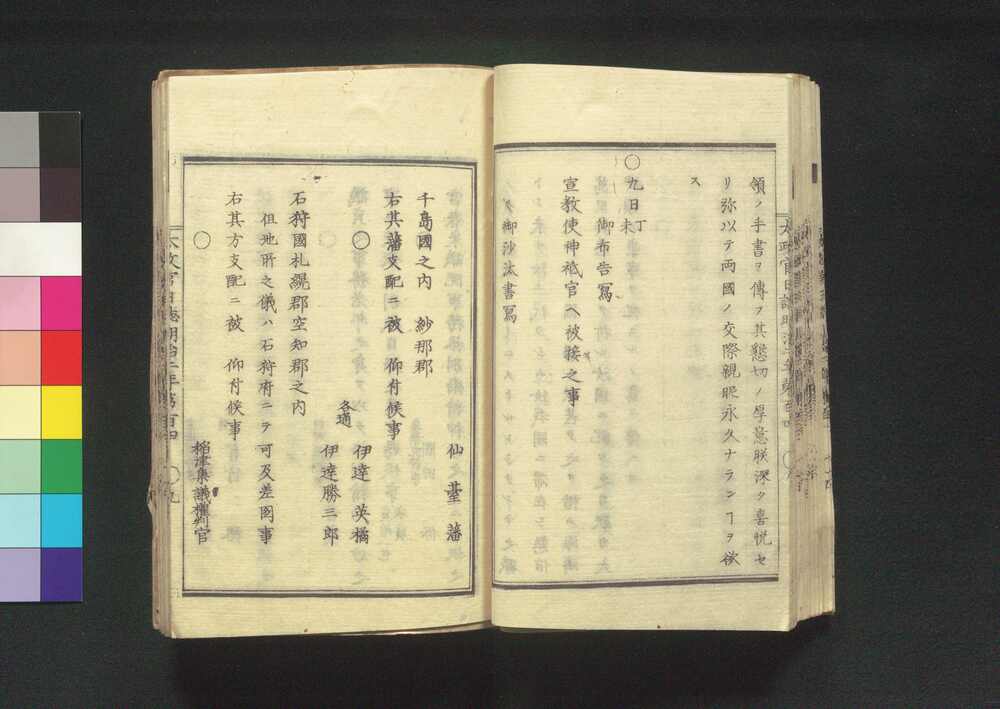 領ノ手書ヲ傳フ其懇切ノ厚意朕深ク喜悦セ
リ弥以テ両國ノ交際親昵永久ナランヿヲ欲
ス
〇九日丁未
御布告寫
宣教使神祗官ヘ被接之事
御沙汰書寫
仙臺藩
千島國之内 紗那郡
右其藩支配ニ被 仰付候事
〇
伊達英橘
各通
伊達勝三郎
石狩國札縨郡空知郡之内
但地所之儀ハ石狩府ニテ可及差圖事
右其方支配ニ被 仰付候事
〇
稲津集議權判官
太政官日誌明治二年第百四
〇九